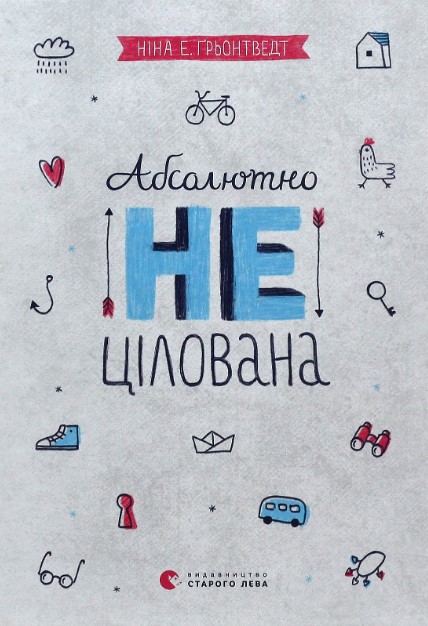 НІНА Е. ҐРЬОНТВЕДТ
Абсолютно
НЕ
ЦІЛОВАНА
ВИДАВНИЦТВО
СТАРОГО ЛЕВА